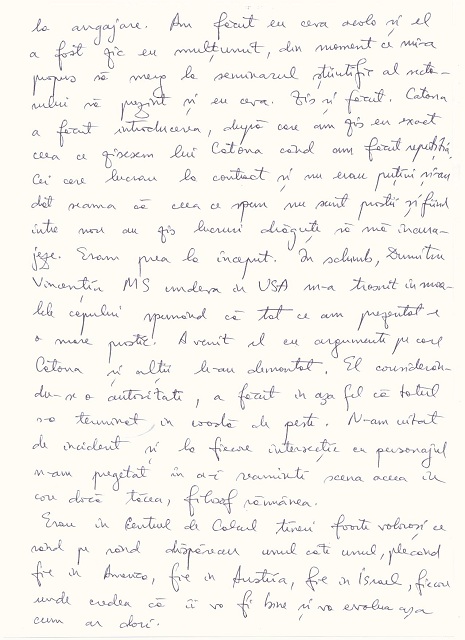 la angajare. Am făcut eu ceva acolo și el
a fost zic eu mulțumit, din moment ce mi-a
propus să merg la seminarul științific al secto-
rului să prezint și eu ceva. Zis și făcut. Catona
a făcut introducerea, după care am zis eu exact
ceea ce zisesem lui Catona când am făcut repetiția.
Cei care lucrau la contract și nu erau puțini și-au
dat seama că ceea ce spun nu sunt prostii și fiind
între noi au zis lucruri drăguțe să mă incura-
jeze. Eram prea la început. În schimb, Dumitru
Vincențiu MS undeva în USA m-a trăsnit în moa-
lele capului spunând că tot ce am prezentat e
o mare prostie. A venit el cu argumente pe care
Catona și alții le-au demontat. El considerân-
du-se o autoritate, a făcut în așa fel că totul
s-a terminat, în coadă de pește. N-am uitat
de incident și la fiecare intersecție cu personajul
n-am pregetat în a-i reaminti scena aceea în
care dacă tăcea, filosof rămânea.
Erau în Centrul de Calcul tineri foarte valoroși ce
rând pe rând dispăreau unul câte unul, plecând
fie in America, fie in Austria, fie in Israel, fiecare
unde credea că îi va fi bine și va evolua așa
cum ar dori.